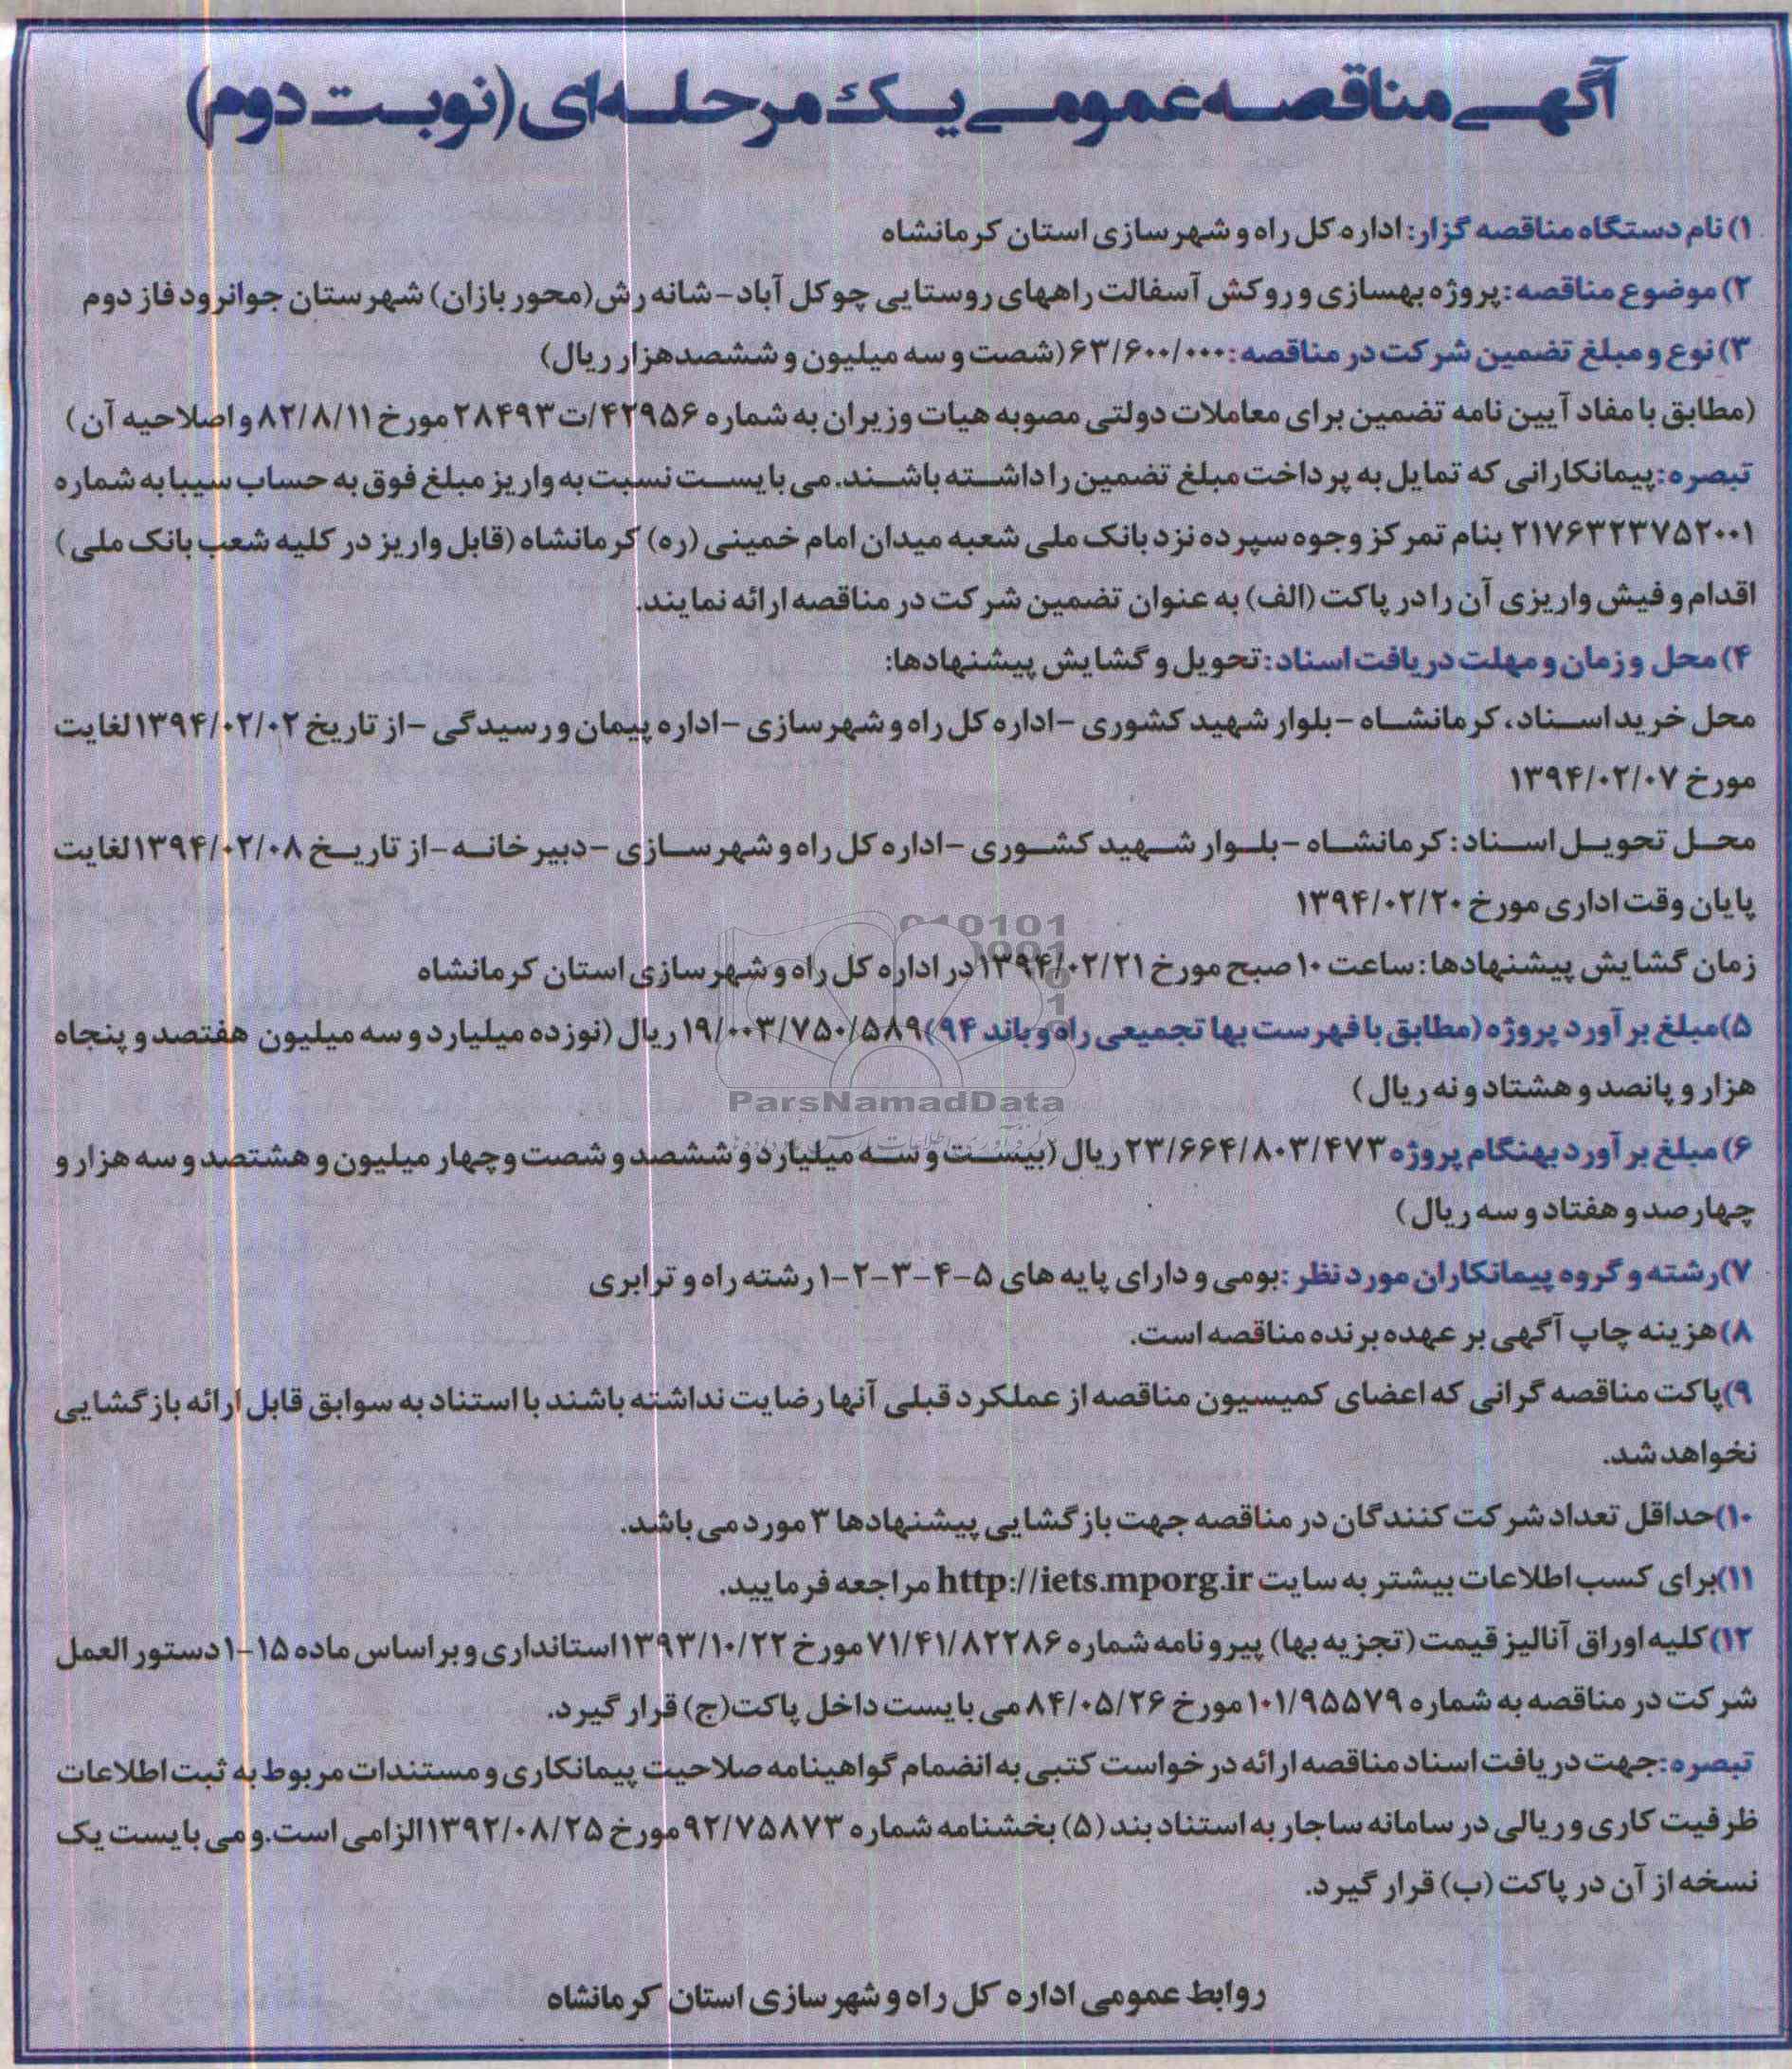 آگهی مناقصه عمومی یک مرحله‌ای (نوبت دوم)
۱) نام دستگاه مناقصه گزار: اداره کل راه و شهرسازی استان کرمانشاه
۲) موضوع مناقصه: پروژه بهسازی و روکش آسفالت راههای روستایی چوکل آباد-شانه رش (محور بازان) شهرستان جوانرود فاز دوم
۳) نوع و مبلغ تضمین شرکت در مناقصه: ۶۳/۶۰۰/۰۰۰ (شصت و سه میلیون و ششصد هزار ریال)
(مطابق با مفاد آیین نامه تضمین برای معاملات دولتی مصوبه هیات وزیران به شماره ۴۲۹۵۶/ت۲۸۴۹۳ مورخ ۸۲/۸/۱۱ و اصلاحیه آن)
تبصره: پیمانکارانی که تمایل به پرداخت مبلغ تضمین را داشته باشند. می بایست نسبت به واریز مبلغ فوق به حساب سیبا به شماره
۲۱۷۶۳۲۳۷۵۲۰۰۱ بنام تمرکز وجوه سپرده نزد بانک ملی شعبه میدان امام خمینی (ره) کرمانشاه (قابل واریز در کلیه شعب بانک ملی)
اقدام و فیش واریزی آن را در پاکت (الف) به عنوان تضمین شرکت در مناقصه ارائه نمایند.
۴) محل و زمان و مهلت دریافت اسناد: تحویل و گشایش پیشنهادها:
محل خرید اسناد، کرمانشاه -بلوار شهید کشوری -اداره کل راه و شهرسازی -اداره پیمان و رسیدگی -از تاریخ ۱۳۹۴/۰۲/۰۲ لغایت
مورخ ۱۳۹۴/۰۲/۰۷
محل تحویل اسناد: کرمانشاه -بلوار شهید کشوری -اداره کل راه و شهرسازی -دبیرخانه -از تاریخ ۱۳۹۴/۰۲/۰۸ لغایت
پایان وقت اداری مورخ ۱۳۹۴/۰۲/۲۰
زمان گشایش پیشنهادها: ساعت ۱۰ صبح مورخ ۱۳۹۴/۰۲/۲۱ در اداره کل راه و شهرسازی استان کرمانشاه
۵) مبلغ برآورد پروژه (مطابق با فهرست بها تجمیعی راه و باند ۹۴) ۱۹/۰۰۳/۷۵۰/۵۸۹ ریال (نوزده میلیارد و سه میلیون هفتصد و پنجاه
هزار و پانصد و هشتاد و نه ریال)
ParsNamadData
۶) مبلغ برآورد بهنگام پروژه ۲۳/۶۶۴/۸۰۳/۴۷۳ ریال (بیست و سه میلیارد و ششصد و شصت و چهار میلیون و هشتصد و سه هزار و
چهارصد و هفتاد و سه ریال)
۷) رشته و گروه پیمانکاران مورد نظر: بومی و دارای پایه های ۵-۴-۳-۲-۱ رشته راه و ترابری
۸) هزینه چاپ آگهی بر عهده برنده مناقصه است.
۹) پاکت مناقصه گرانی که اعضای کمیسیون مناقصه از عملکرد قبلی آنها رضایت نداشته باشند با استناد به سوابق قابل ارائه بازگشایی
نخواهد شد.
۱۰) حداقل تعداد شرکت کنندگان در مناقصه جهت بازگشایی پیشنهادها ۳ مورد می باشد.
۱۱) برای کسب اطلاعات بیشتر به سایت http://iets.mporg.ir مراجعه فرمایید.
۱۲) کلیه اوراق آنالیز قیمت (تجزیه بها) پیرو نامه شماره ۷۱/۴۱/۸۲۲۸۶ مورخ ۱۳۹۳/۱۰/۲۲ استانداری و براساس ماده ۱۵-۱ دستور العمل
شرکت در مناقصه به شماره ۱۰۱/۹۵۵۷۹ مورخ ۸۴/۰۵/۲۶ می بایست داخل پاکت (ج) قرار گیرد.
تبصره: جهت دریافت اسناد مناقصه ارائه درخواست کتبی به انضمام گواهینامه صلاحیت پیمانکاری و مستندات مربوط به ثبت اطلاعات
ظرفیت کاری و ریالی در سامانه ساجار به استناد بند (۵) بخشنامه شماره ۹۲/۷۵۸۷۳ مورخ ۱۳۹۲/۰۸/۲۵ الزامی است. و می بایست یک
نسخه از آن در پاکت (ب) قرار گیرد.
روابط عمومی اداره کل راه و شهرسازی استان کرمانشاه